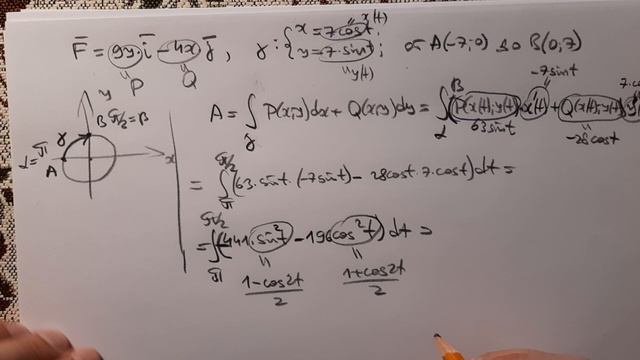 F̄ = 9y·ī - 4x j̄, γ: { x = 7cost; y = 7·sint; от A(-7;0) до B(0;7)
P Q
x(t)
y(t)
A = ∫γ P(x;y)dx + Q(x;y)dy = ∫αβ (P(x(t);y(t)) x'(t) + Q(x(t);y(t))
-7sint
63sint
-28cost
y
B π/2 = β
γ
α = π
A
x
= ∫π π/2 (63·sint·(-7sint) - 28cost·7·cost)dt =
= ∫π π/2 (-441·sin²t - 196cos²t) dt =
1-cos2t / 2
1+cos2t / 2